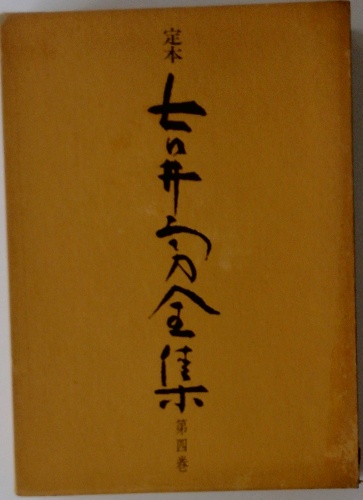 定本
吉井勇全集
第四巻